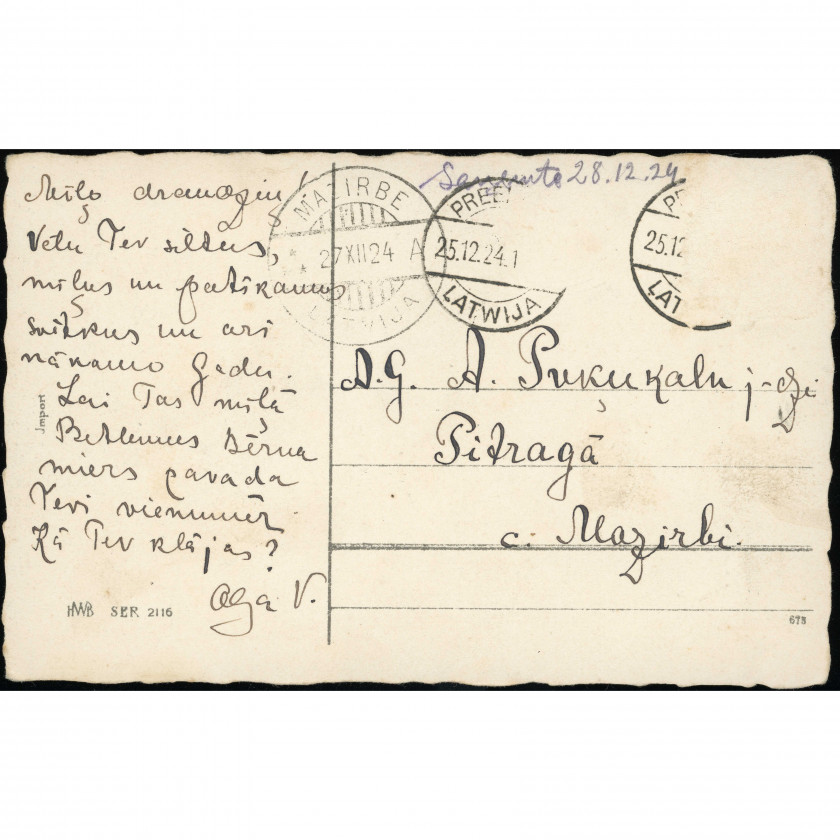 Saņemts 28.12.24
MAZIRBE
27 XII 24 A
LATVIJA
PREE
25.12.24.1
LATWIJA
PR
25.12
LAT
Mīļo draudziņ!
Vēlu Tev siltus,
mīļus un patīkamus
svētkus un arī
nākamo Gadu.
Lai Tas mīļā
Betlemes bērna
miers pavada
Tevi vienmēr.
Kā Tev klājas?
Olga V.
A.G. A. Puķukaln j-dzi
Pitragā
c. Mazirbi.
Import
HWB SER 2116
675